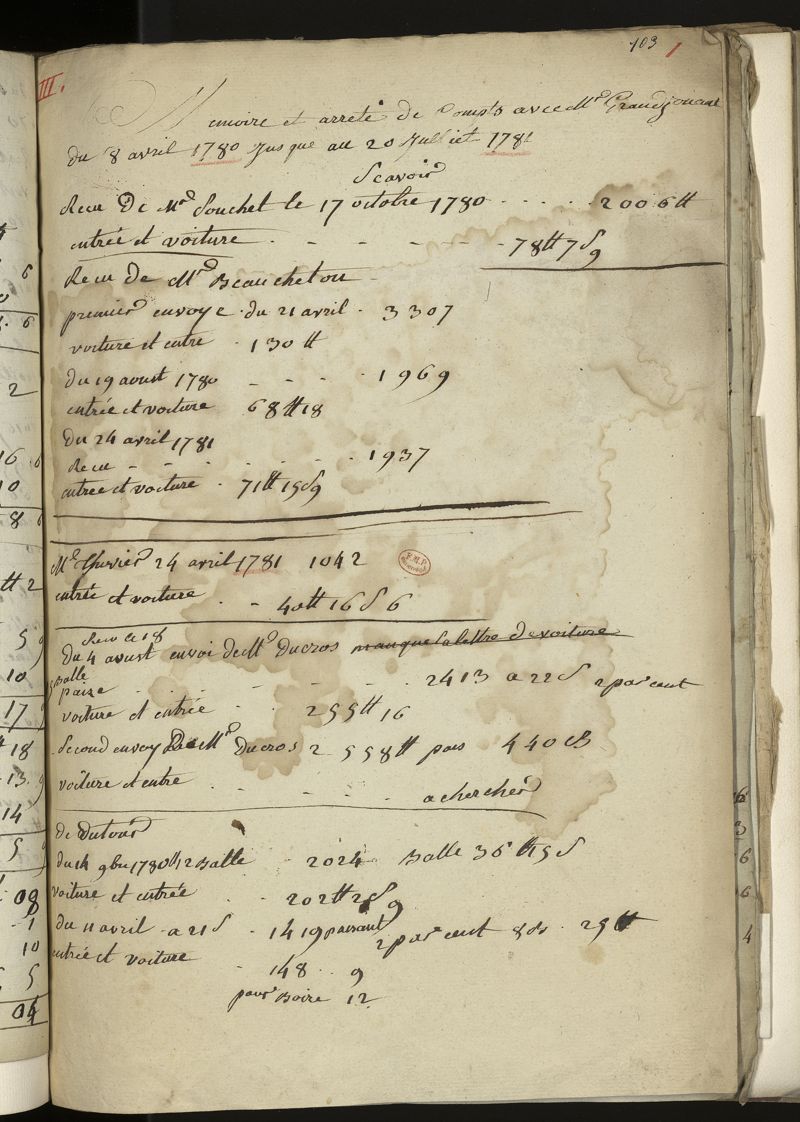 103 1
III.
Memoire et arreté de Compte avec Mr. Grandjouant
du 8 avril 1780 Jusque au 20 Julliet 1781
Scavoir
Recu De Mr. Souchet le 17 octobre 1780 - - - - - 2006 tt
entrée et voiture - - - - - - 78 tt 7 S 9
Recu de Mr. Beaucheton
premier envoye du 21 avril - 3307
voiture et entre - 130 tt
du 19 aoust 1780 - - - - 1969
entrée et voiture 68 tt 18
Du 24 avril 1781
Recu - - - - - - 1937
entree et voiture - 71 tt 15 S 9
24 avril 1781 1042
entrée et voiture - - 40 tt 16 S 6
Recu le 18
Du 4 avust envoi de Mr. Ducros manque la lettre de voiture
5 balle
paise - - - - - - 2413 a 22 S 2 par cent
voiture et entrée - - 255 tt 16
Second envoy De Mr. Ducros 2558 tt pais 440 cB
voiture et entre - - - - - a chercher
de Dutour
du 14 9bre 1780 12 Balle - 2024 Balle 36 tt 15 S
voiture et entrée - - 202 tt 2 S 9
du 11 avril - a 21 S - 1419 paisant 2 par cent 8ds - 25 tt
entrée et voiture - 148 - - 9
pour Boire 12